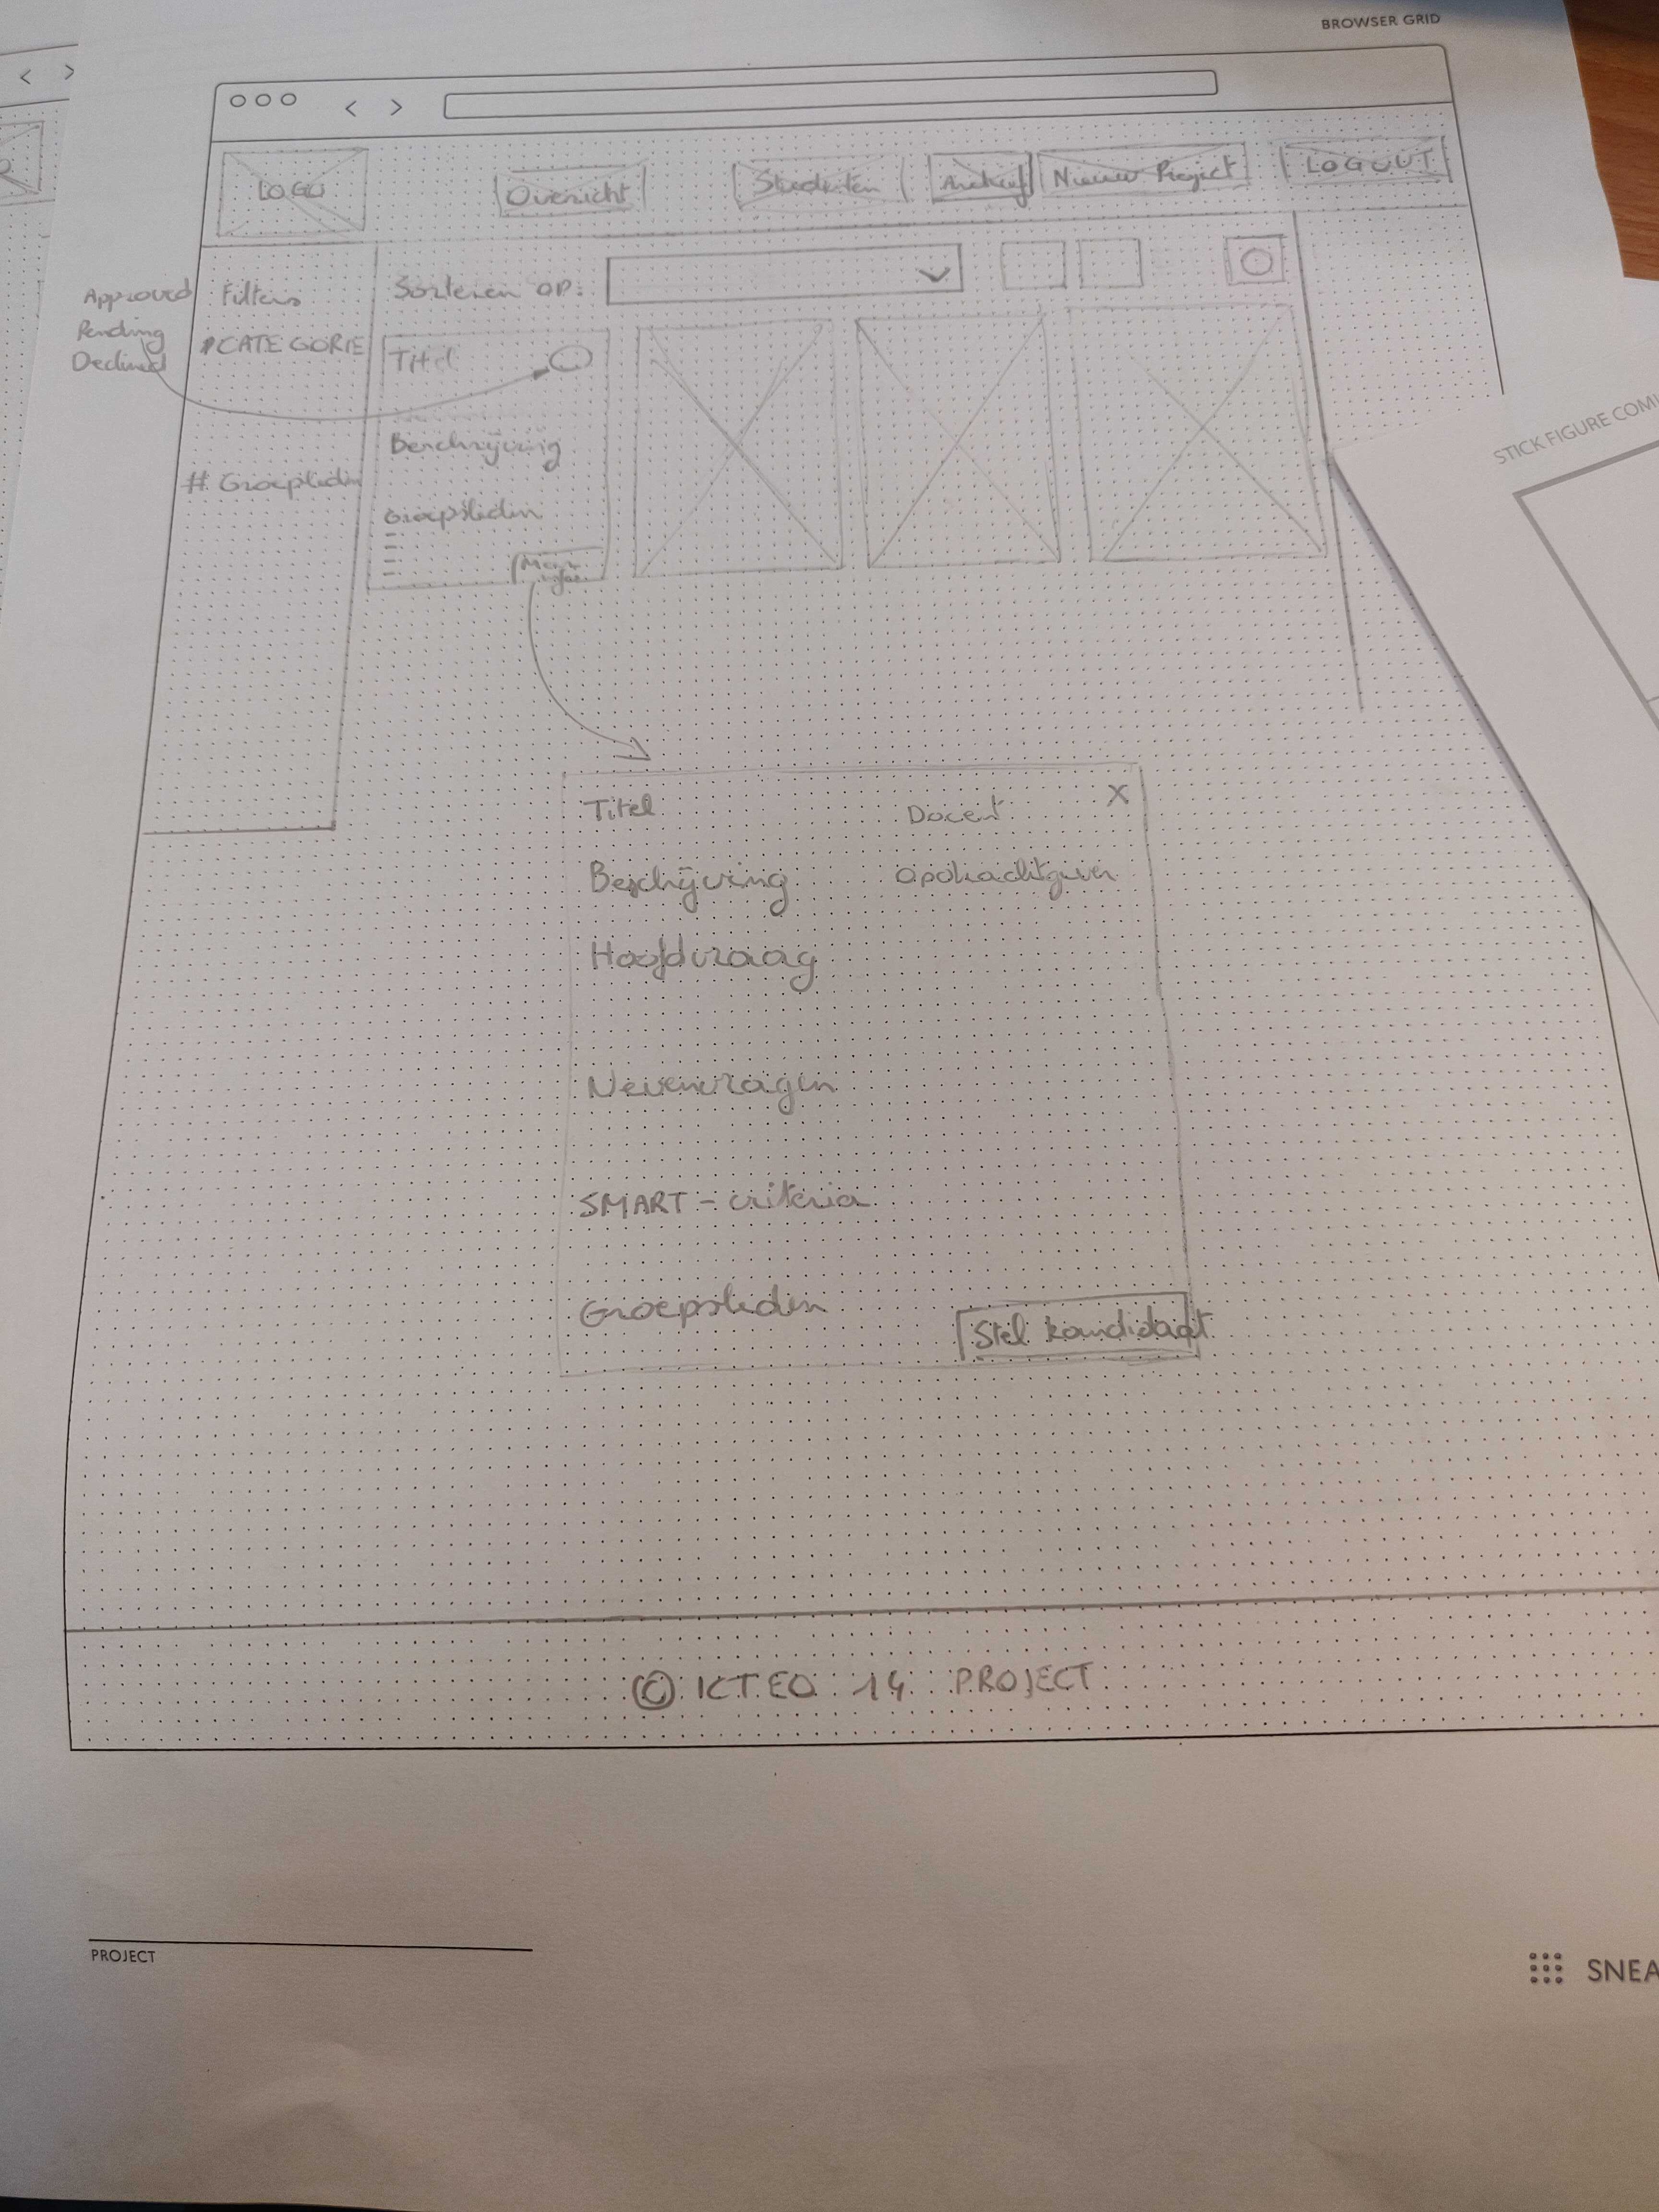 BROWSER GRID
LOGO
Overzicht
Studenten
Archief
Nieuw Project
LOGOUT
Approved
Pending
Declined
Filters
CATEGORIE
# Groepsleden
Sorteren op:
Titel
Beschrijving
Groepsleden
Meer info
STICK FIGURE COMI
Titel
Docent
X
Beschrijving
Opdrachtgever
Hoofdvraag
Nevenvragen
SMART - criteria
Groepsleden
Stel kandidaat
© ICT EO 14 PROJECT
PROJECT
SNEA